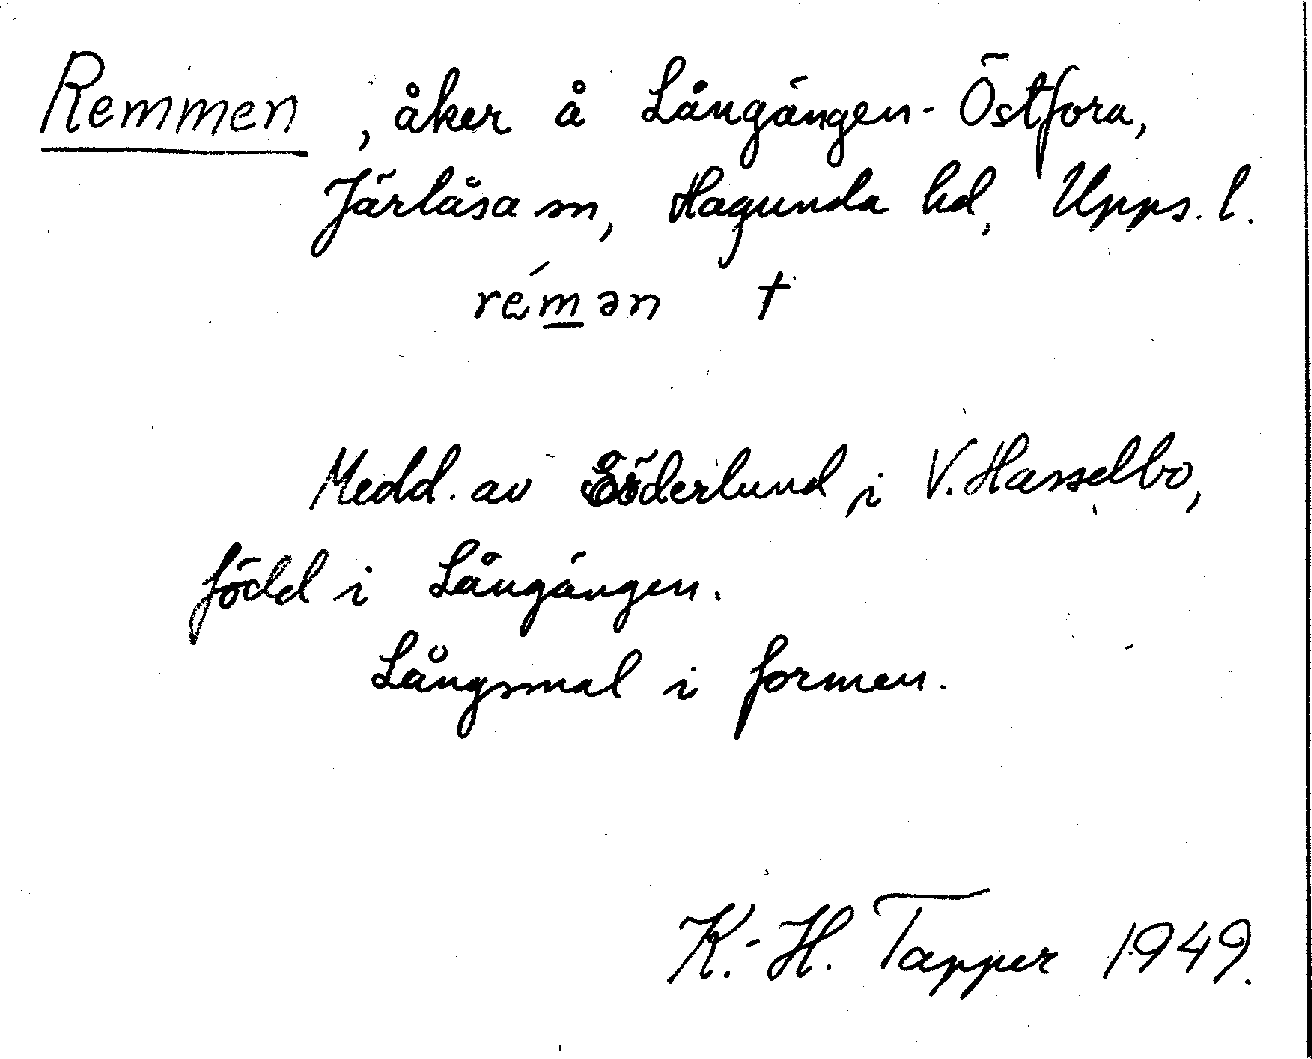 Remmen, åker å Långängen-Östfora,
Järlåsa sn, Hagunda hd, Upps. l.
rémən †
Medd. av Söderlund, i V. Hasselbo,
född i Långängen.
Långsmal i formen.
K.-H. Tapper 1949.